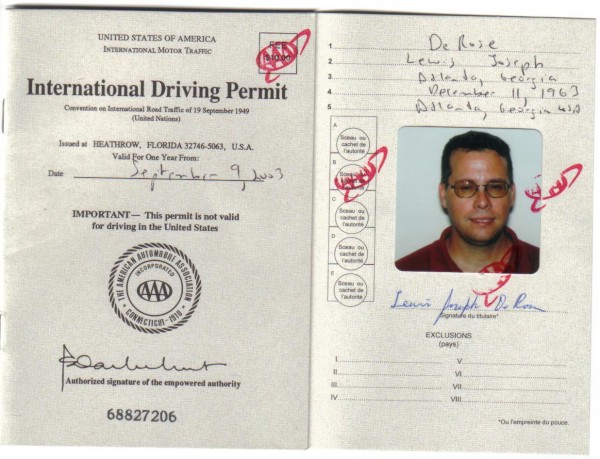 UNITED STATES OF AMERICA
INTERNATIONAL MOTOR TRAFFIC
FEE
$10.00
AAA
International Driving Permit
Convention on International Road Traffic of 19 September 1949
(United Nations)
Issued at HEATHROW, FLORIDA 32746-5063, U.S.A.
Valid For One Year From:
Date September 9, 2003
IMPORTANT— This permit is not valid
for driving in the United States
THE AMERICAN AUTOMOBILE ASSOCIATION
INCORPORATED
AAA
CONNECTICUT-1910
Authorized signature of the empowered authority
68827206
1. De Rose
2. Lewis Joseph
3. Atlanta, Georgia
4. December 11, 1963
5. Atlanta, Georgia USA
A
Sceau ou
cachet de
l'autorité
B
AAA
C
Sceau ou
cachet de
l'autorité
D
Sceau ou
cachet de
l'autorité
E
Sceau ou
cachet de
l'autorité
AAA
AAA
Lewis Joseph De Rose
Signature du titulaire*
EXCLUSIONS
(pays)
I. V.
II. VI.
III. VII.
IV. VIII.
*Ou l'empreinte du pouce.